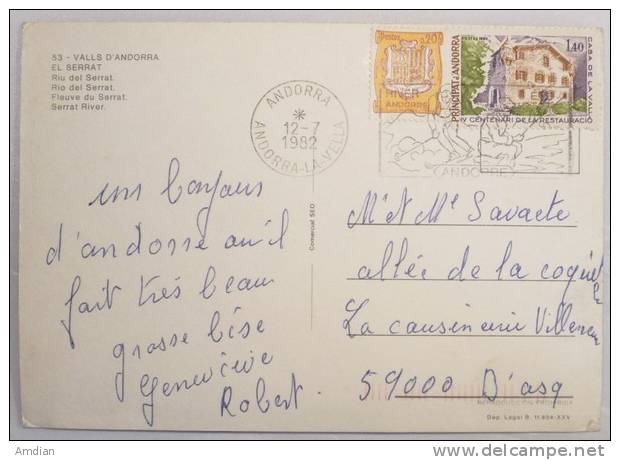 53 - VALLS D'ANDORRA
EL SERRAT
Riu del Serrat.
Rio del Serrat.
Fleuve du Serrat.
Serrat River.
ANDORRA
12-7
1982
ANDORRA-LA-VELLA
Postes
0,20
ANDORRE
PRINCIPAT D'ANDORRA
1,40
CASA DE LA VALL
IV CENTENARI DE LA RESTAURACIÓ
(ANDORRE)
d'andorre
fait très beau
grosse bise
Geneviève
Robert
Comercial SEO
Mr et Me Savaete
allée de la
La cousinerie
59000 D'asq
Dép. Legal B. 11.894-XXV
Amdian
delcampe.net